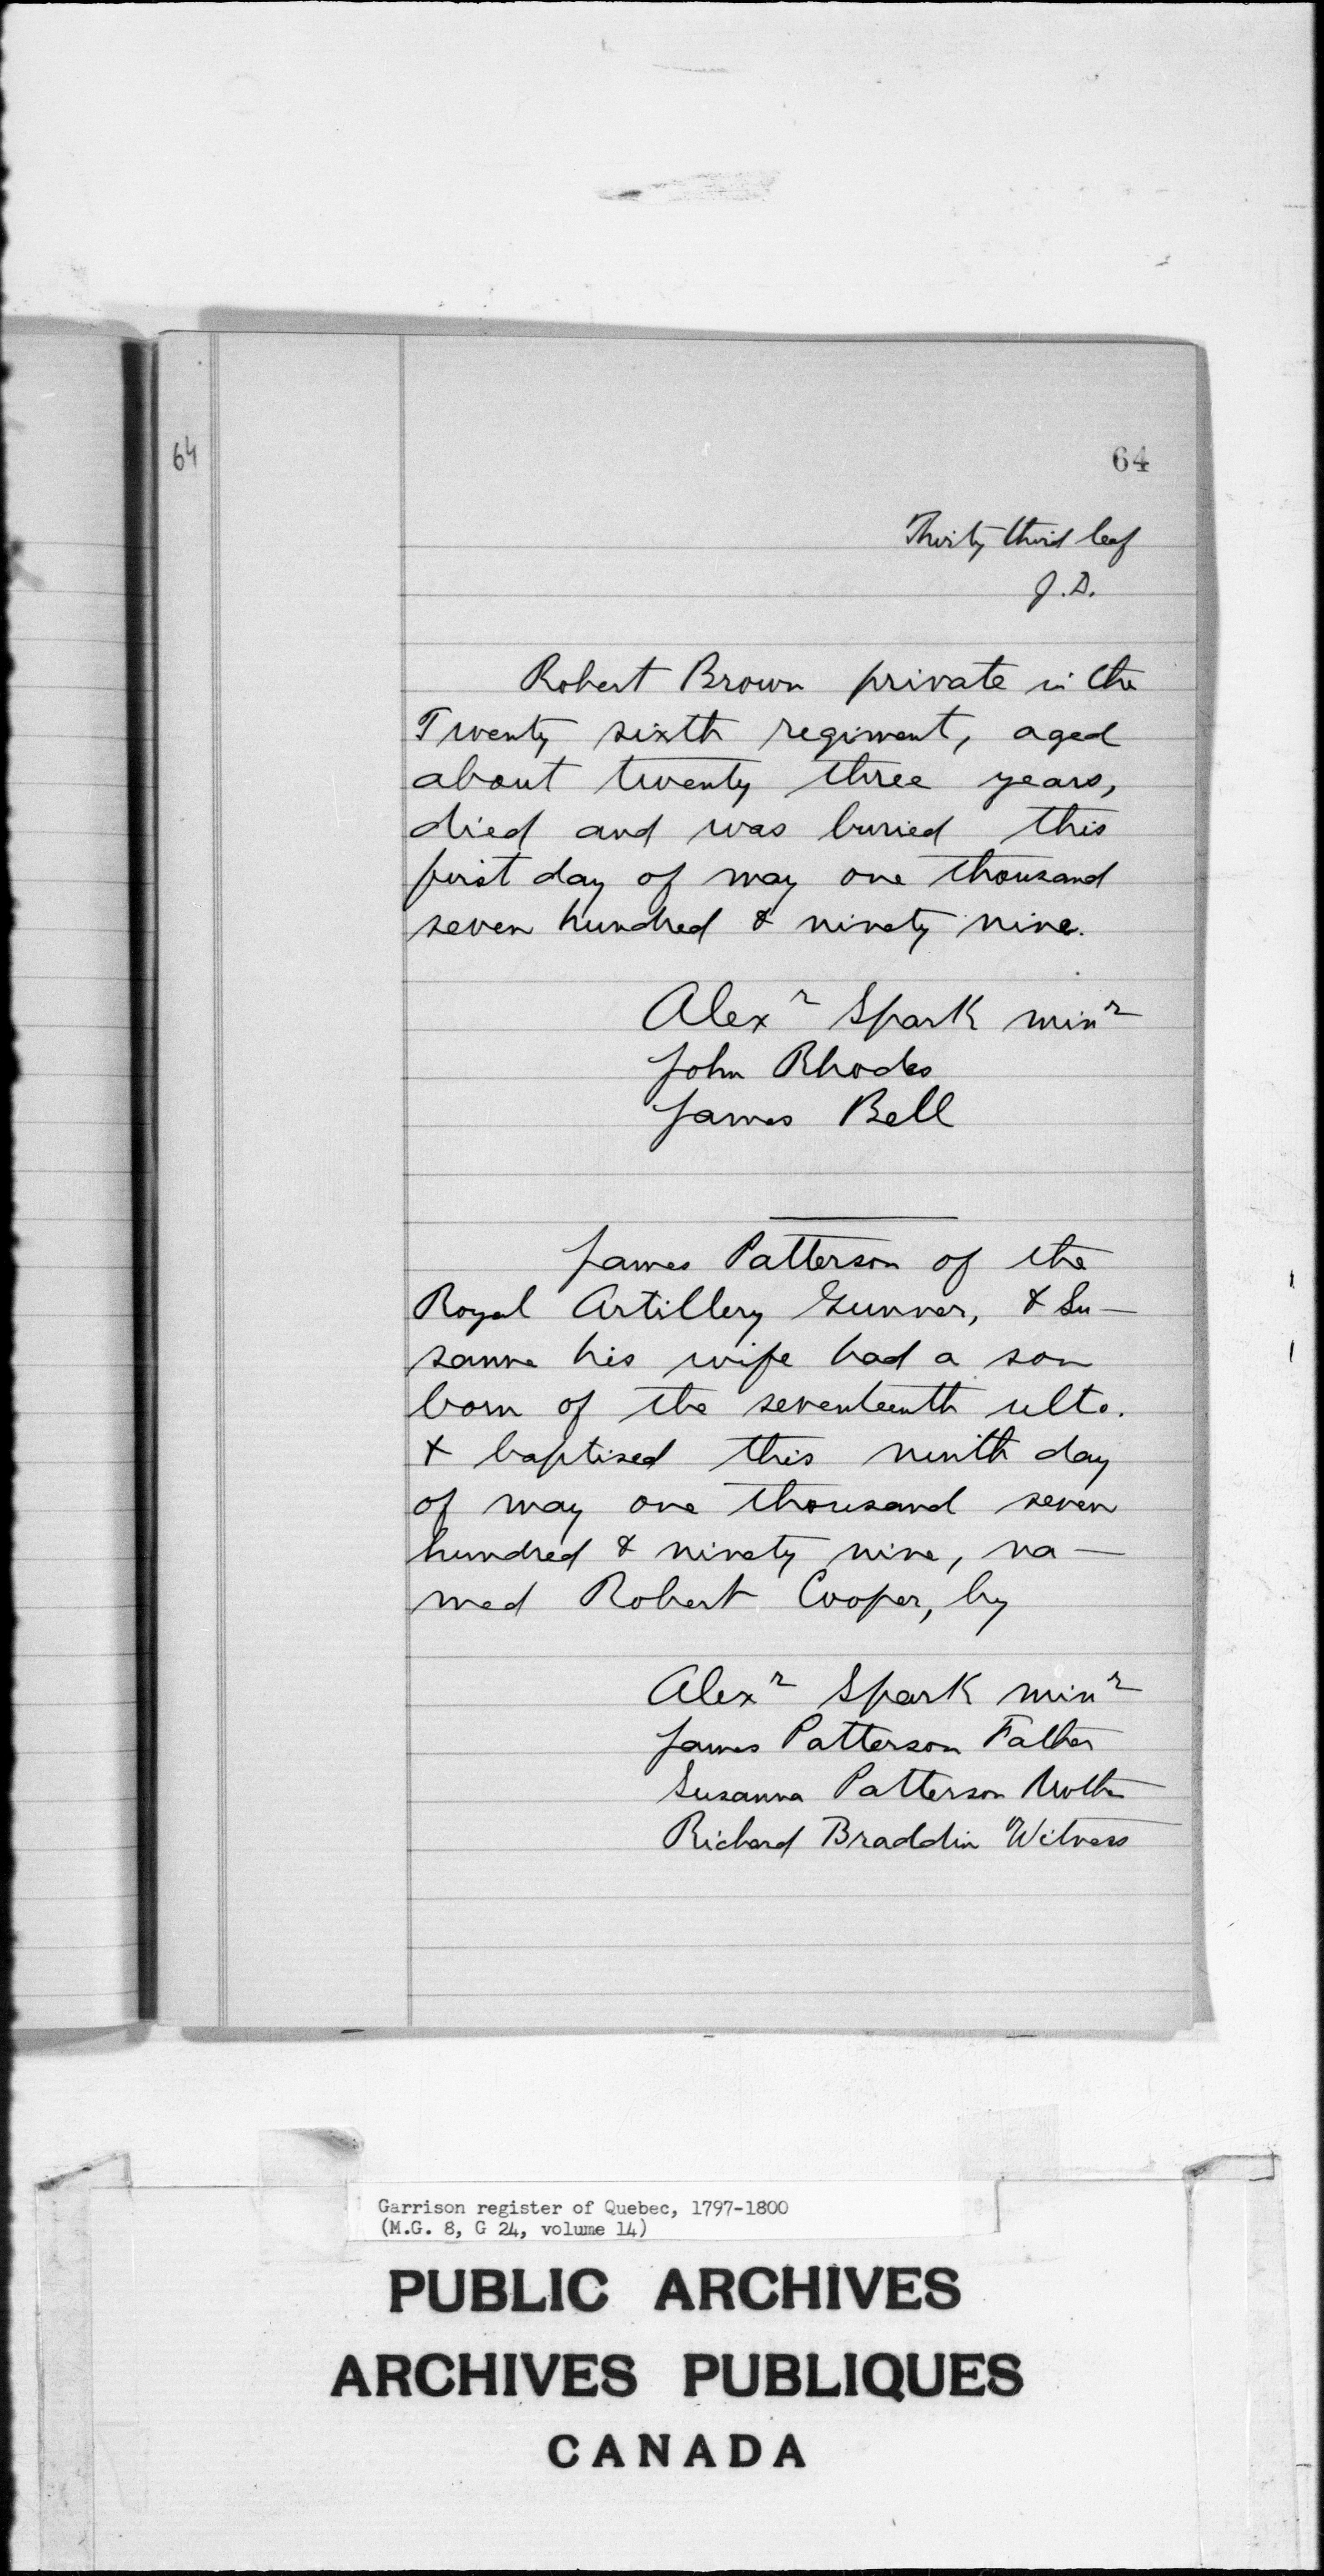 64
64
Thirty third leaf
J.D.
Robert Brown private in the
Twenty sixth regiment, aged
about twenty three years,
died and was buried this
first day of may one thousand
seven hundred & ninety nine.
Alexr Spark minr
John Rhodes
James Bell
James Patterson of the
Royal Artillery Gunner, & Su-
sanna his wife had a son
born of the seventeenth ulto.
& baptised this ninth day
of may one thousand seven
hundred & ninety nine, na-
med Robert Cooper, by
Alexr Spark minr
James Patterson Father
Susanna Patterson Mother
Richard Braddin Witness
Garrison register of Quebec, 1797-1800
(M.G. 8, G 24, volume 14)
PUBLIC ARCHIVES
ARCHIVES PUBLIQUES
CANADA